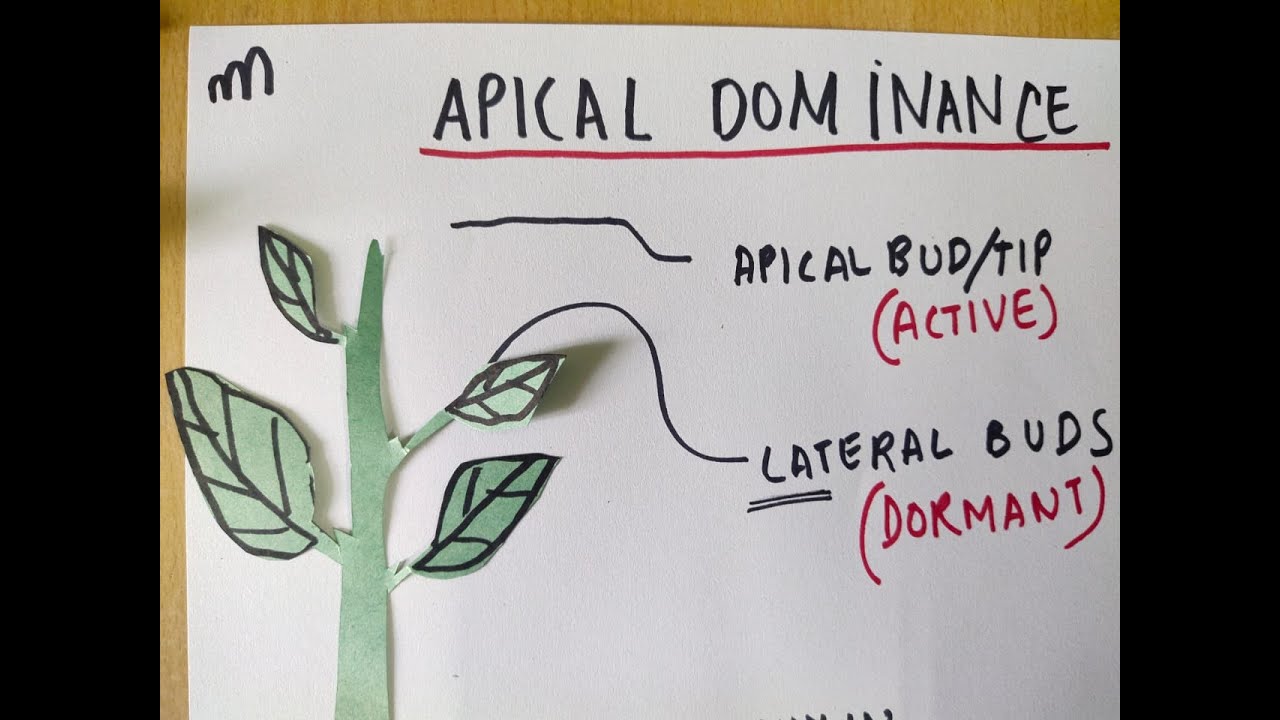 m
APICAL DOMINANCE
APICAL BUD/TIP
(ACTIVE)
LATERAL BUDS
(DORMANT)